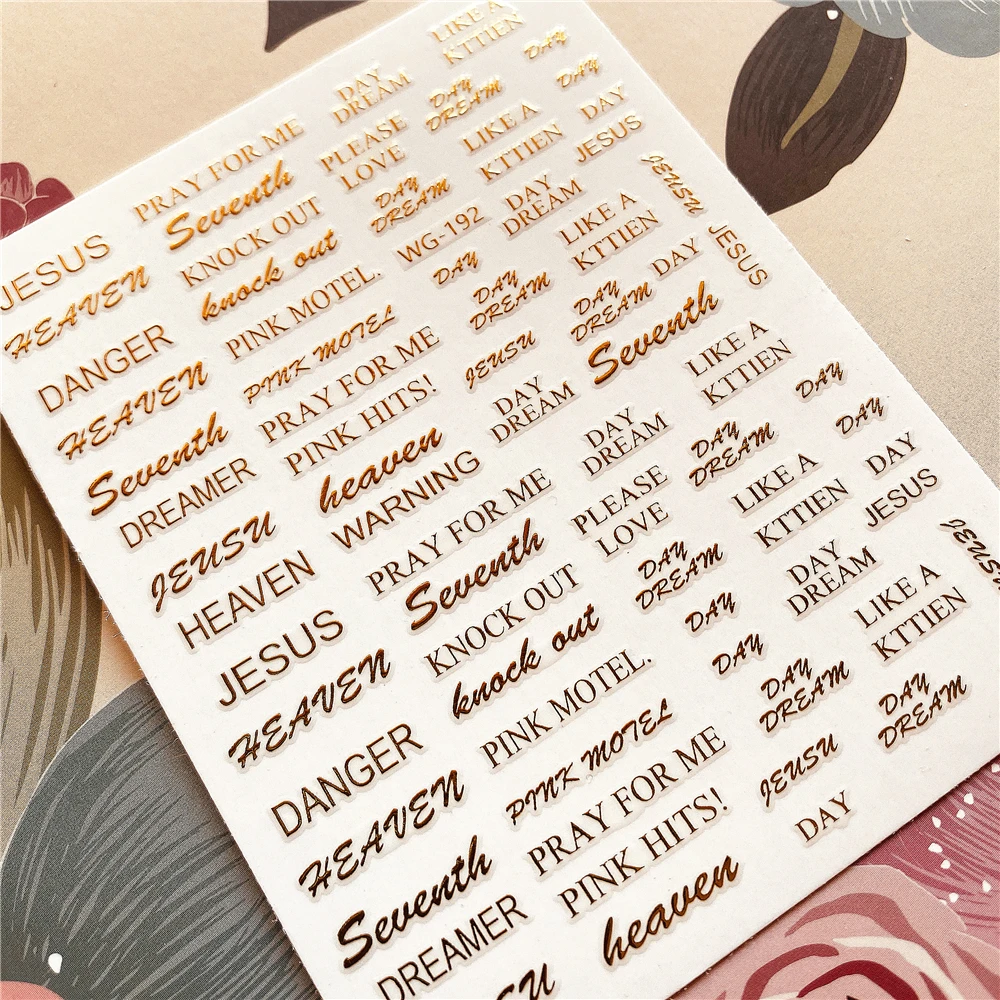 LIKE A
KTTIEN
DAY
DAY
DREAM
DAY
DREAM
DAY
PRAY FOR ME
PLEASE
LOVE
LIKE A
KTTIEN
DAY
JESUS
Seventh
DAY
DREAM
DAY
DREAM
JEUSU
JESUS
KNOCK OUT
WG-192
LIKE A
KTTIEN
JESUS
HEAVEN
knock out
DAY
DAY
DREAM
DAY
DREAM
DAY
PINK MOTEL.
Seventh
DANGER
PINK MOTEL
JEUSU
LIKE A
KTTIEN
DAY
HEAVEN
PRAY FOR ME
DAY
DREAM
DAY
DREAM
DAY
DREAM
DAY
Seventh
PINK HITS!
heaven
PLEASE
LOVE
LIKE A
KTTIEN
DAY
JESUS
DREAMER
WARNING
PRAY FOR ME
DAY
DREAM
DAY
DREAM
JEUSU
JEUSU
Seventh
LIKE A
KTTIEN
HEAVEN
KNOCK OUT
DAY
JESUS
knock out
DAY
DAY
DREAM
DAY
DREAM
HEAVEN
PINK MOTEL.
DANGER
PINK MOTEL
JEUSU
HEAVEN
PRAY FOR ME
DAY
Seventh
PINK HITS!
DREAMER
heaven